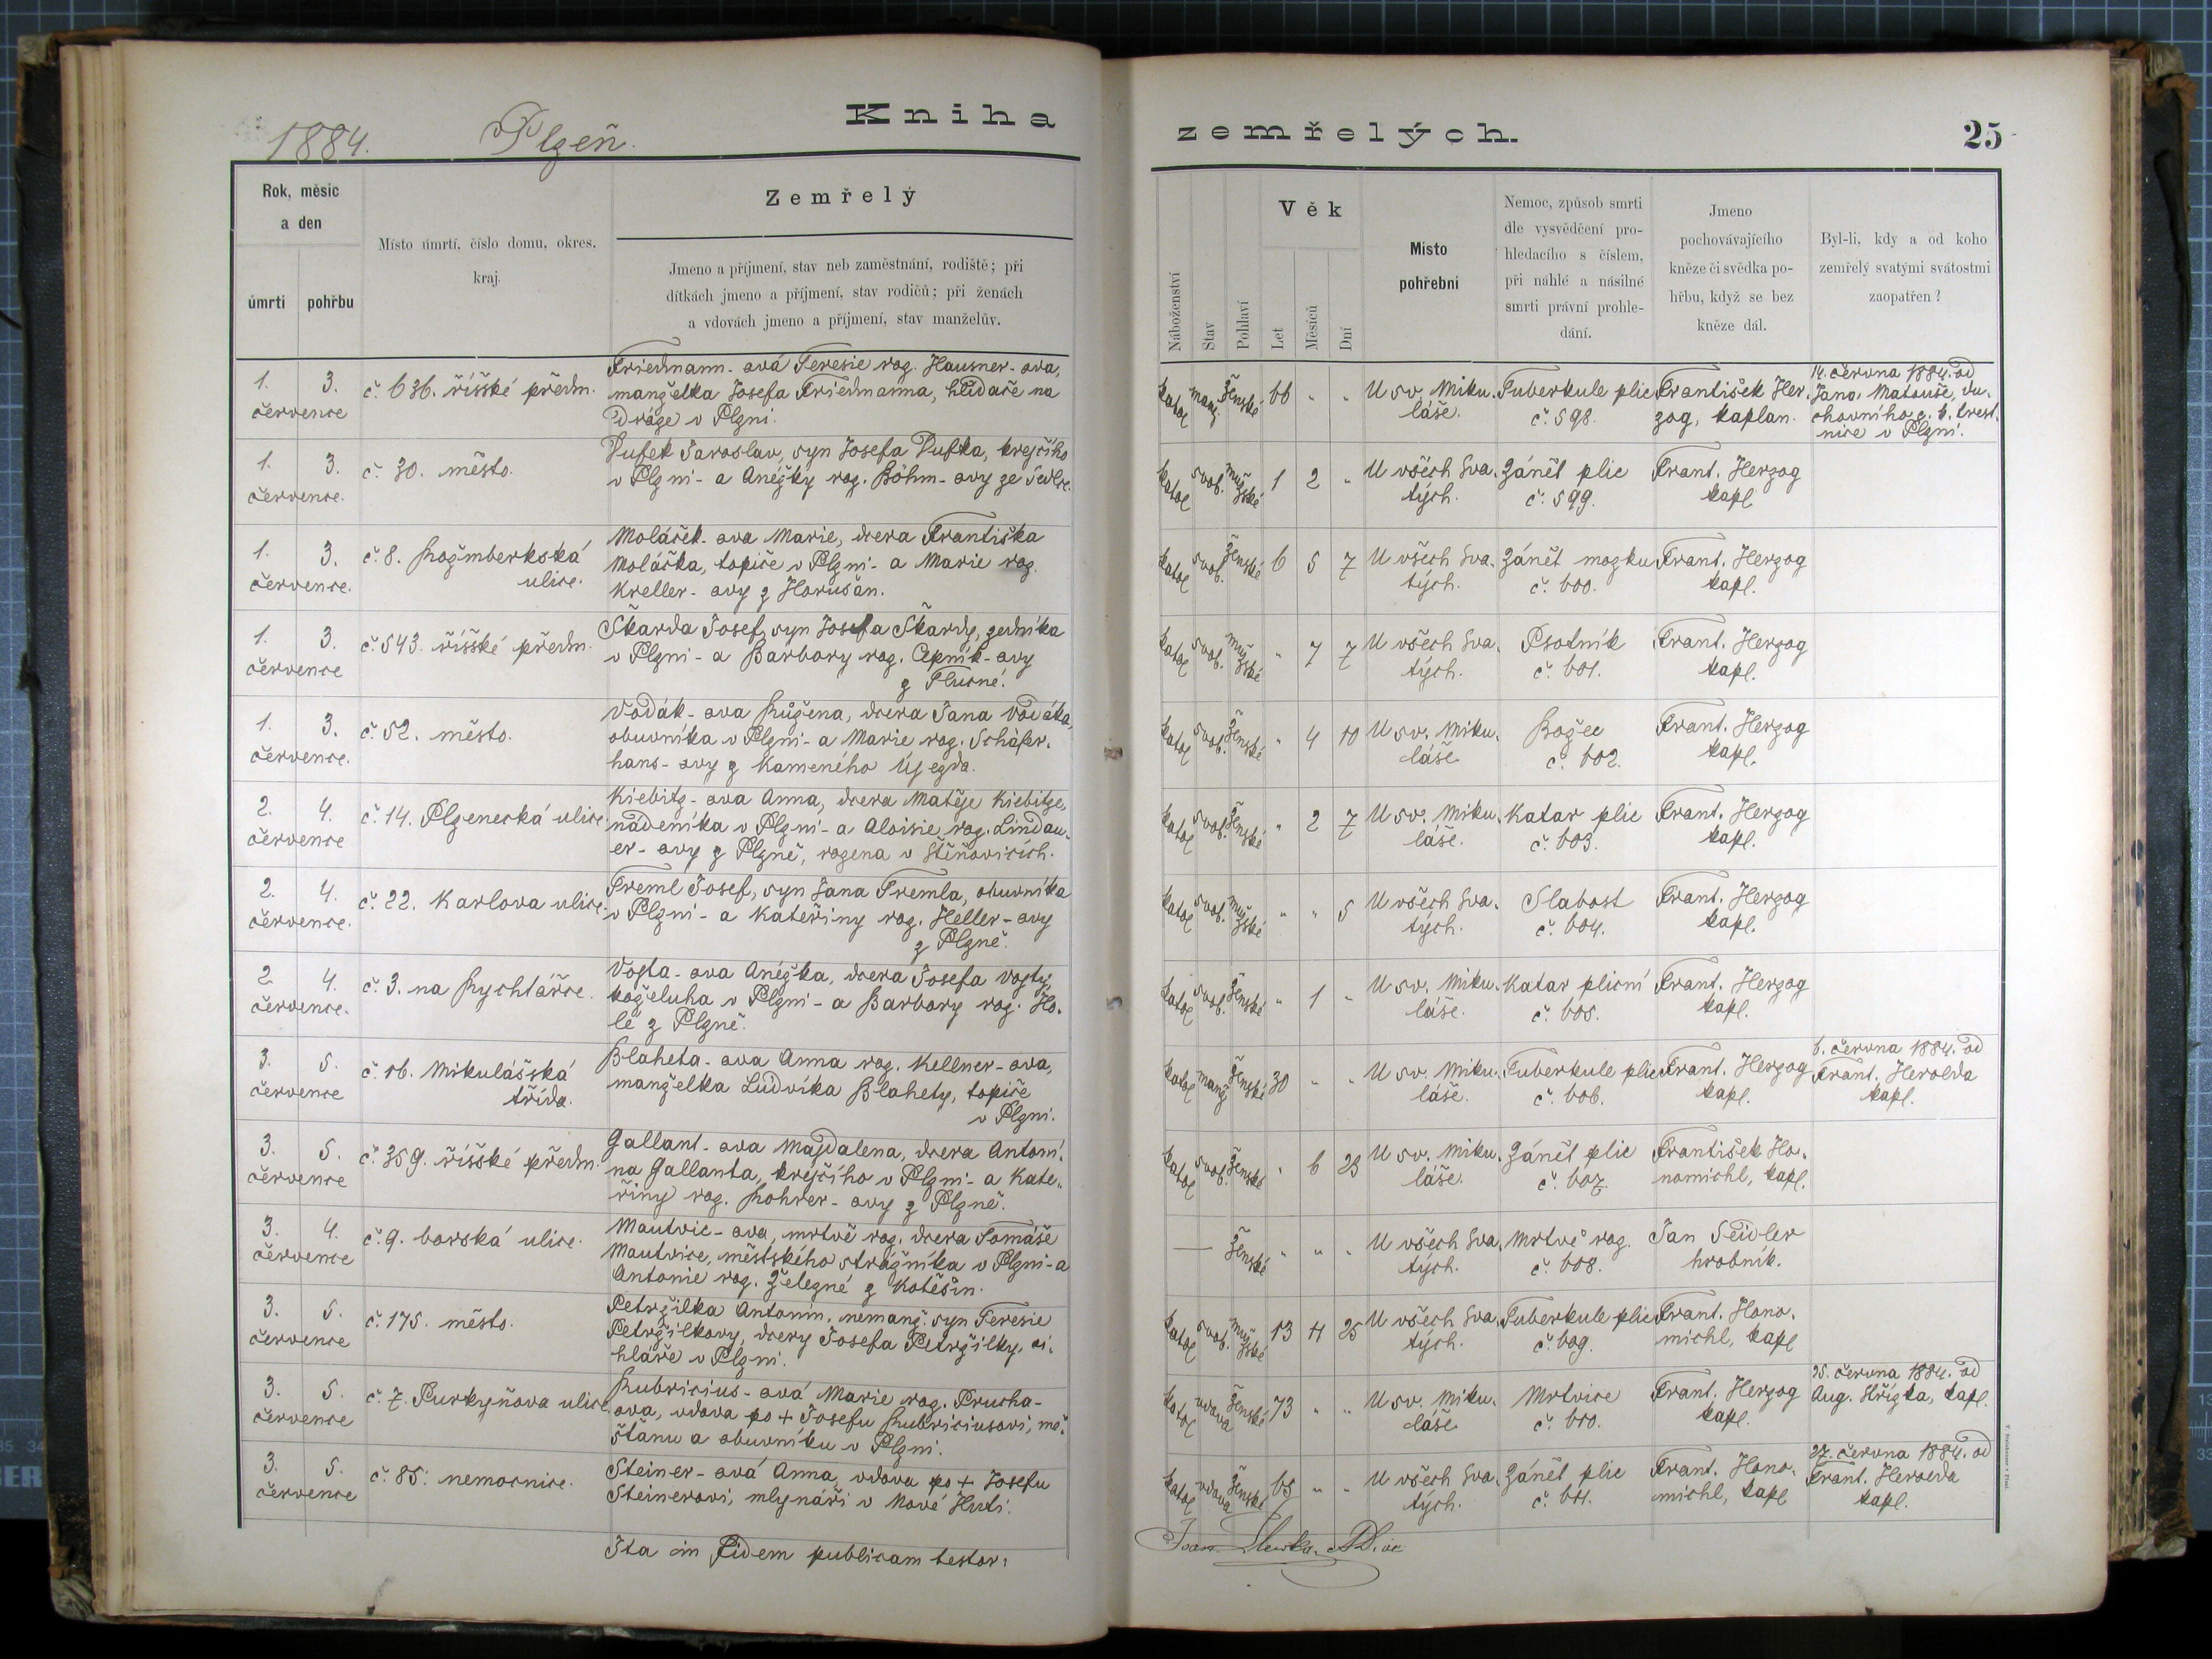 1884. Plzeň.
Kniha
zemřelých.
25
Rok, měsíc
a den
úmrtí
pohřbu
Místo úmrtí, číslo domu, okres,
kraj.
Zemřelý
Jmeno a příjmení, stav neb zaměstnání, rodiště; při
dítkách jmeno a příjmení, stav rodičů; při ženách
a vdovách jmeno a příjmení, stav manželův.
Náboženství
Stav
Pohlaví
Věk
Let
Měsíců
Dní
Místo
pohřební
Nemoc, způsob smrti
dle vysvědčení pro-
hledacího s číslem,
při náhlé a násilné
smrti právní prohle-
dání.
Jmeno
pochovávajícího
kněze či svědka po-
hřbu, když se bez
kněze dál.
Byl-li, kdy a od koho
zemřelý svatými svátostmi
zaopatřen?
1. 3.
července
č. 636. říšské předm.
Friedmann-ová Teresie roz. Hausner-ova,
manželka Josefa Friedmanna, hlídače na
dráze v Plzni.
katol manž. ženské 66 " "
U sv. Miku-
láše.
Tuberkule plic
č. 598.
František Her-
zog, kaplan.
14. června 1884. od
Jana Matouše, du-
chovního c. k. trest-
nice v Plzni.
1. 3.
července.
č. 30. město.
Dufek Jaroslav, syn Josefa Dufka, krejčího
v Plzni - a Anéžky roz. Böhm-ovy ze Sedlce.
katol svob. mužské 1 2 "
U všech Sva-
tých.
Zánět plic
č. 599.
Frant. Herzog
kapl.
1. 3.
července.
č. 8. Rožmberkská
ulice.
Moláček-ova Marie, dcera Františka
Moláčka, topiče v Plzni - a Marie roz.
Kreller-ovy z Horušan.
katol svob. ženské 6 5 7
U všech Sva-
tých.
Zánět mozku
č. 600.
Frant. Herzog
kapl.
1. 3.
července
č. 543. říšské předm.
Škarda Josef, syn Josefa Škardy, zedníka
v Plzni - a Barbory roz. Cepník-ovy
z Tlucné.
katol svob. mužské " 7 7
U všech Sva-
tých.
Psotník
č. 601.
Frant. Herzog
kapl.
1. 3.
července.
č. 52. město.
Vodák-ova Růžena, dcera Jana Vodáka,
obuvníka v Plzni - a Marie roz. Schäfer-
hans-ovy z Kameného Újezda.
katol svob. ženské " 4 10
U sv. Miku-
láše
Božec
č. 602.
Frant. Herzog
kapl.
2. 4.
července
č. 14. Plzenecká ulice.
Kiebitz-ova Anna, dcera Matěje Kiebitze,
nádeníka v Plzni - a Aloisie roz. Lindau-
er-ovy z Plzně, rozena v Štěňovicích.
katol svob. ženské " 2 7
U sv. Miku-
láše.
Katar plic
č. 603.
Frant. Herzog
kapl.
2. 4.
července.
č. 22. Karlova ulice.
Treml Josef, syn Jana Tremla, obuvníka
v Plzni - a Kateřiny roz. Heller-ovy
z Plzně.
katol svob. mužské " " 5
U všech Sva-
tých.
Slabost
č. 604.
Frant. Herzog
kapl.
2 4.
července.
č. 3. na Rychtářce.
Vojta-ova Anéžka, dcera Josefa Vojty,
koželuha v Plzni - a Barbory roz. Ho-
lé z Plzně.
katol svob. ženské " 1 "
U sv. Miku-
láše.
Katar plicní
č. 605.
Frant. Herzog
kapl.
3. 5.
července
č. 16. Mikulášská
třída.
Blaheta-ova Anna roz. Kellner-ova,
manželka Ludvíka Blahety, topiče
v Plzni.
katol manž ženské 30 " "
U sv. Miku-
láše.
Tuberkule plic
č. 606.
Frant. Herzog
kapl.
6. června 1884. od
Frant. Herolda
kapl.
3. 5.
července
č. 359. říšské předm.
Gallant-ova Majdalena, dcera Antoní-
na Gallanta, krejčího v Plzni - a Kate-
řiny roz. Rohrer-ovy z Plzně.
katol svob. ženské " 6 23
U sv. Miku-
láše.
Zánět plic
č. 607.
František Ho-
nomichl, kapl.
3. 4.
července
č. 9. borská ulice.
Mautvic-ova, mrtvě roz. dcera Tomáše
Mautvice, městského strážníka v Plzni - a
Antonie roz. Železné z Kotěšín.
— ženské " " "
U všech Sva-
tých.
Mrtvě roz.
č. 608.
Jan Seidler
hrobník.
3. 5.
července
č. 175. město.
Petržilka Antonín, nemanž. syn Teresie
Petržilkovy, dcery Josefa Petržilky, ci-
hláře v Plzni.
katol svob. mužské 13 11 25
U všech Sva-
tých.
Tuberkule plic
č. 609.
Frant. Hono-
michl, kapl
3. 5.
července
č. 7. Purkyňova ulice.
Rubricius-ová Marie roz. Prucha-
ova, vdova po + Josefu Rubriciusovi, mě-
šťanu a obuvníku v Plzni.
katol vdova ženské 73 " "
U sv. Miku-
láše
Mrtvice
č. 610.
Frant. Herzog
kapl.
25. června 1884. od
Aug. Hřízka, kapl.
3. 5.
července
č. 85. nemocnice.
Steiner-ová Anna, vdova po + Josefu
Steinerovi, mlynáři v Nové Huti.
katol vdova ženské 65 " "
U všech Sva-
tých.
Zánět plic
č. 611.
Frant. Hono-
michl, kapl
27. června 1884. od
Frant. Herolda
kapl.
Ita in fidem publicam testor: